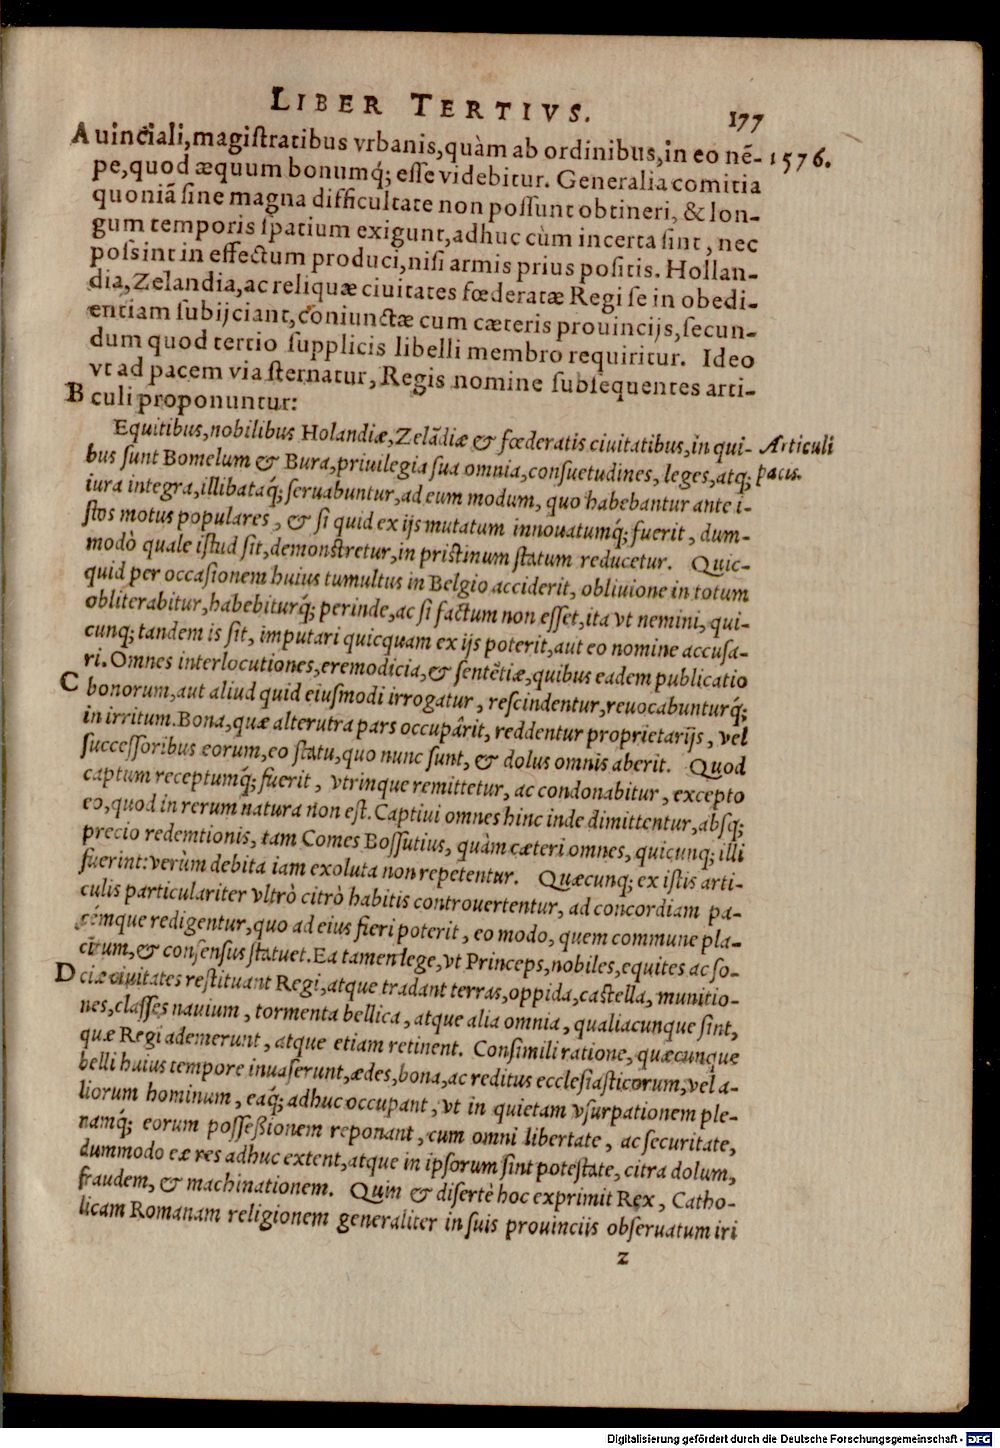 LIBER TERTIVS. 177
A uinciali, magistratibus vrbanis, quàm ab ordinibus, in eo nē- 1576.
pe, quod æquum bonumq́; esse videbitur. Generalia comitia
quoniã sine magna difficultate non possunt obtineri, & lon-
gum temporis spatium exigunt, adhuc cùm incerta sint, nec
possint in effectum produci, nisi armis prius positis. Hollan-
dia, Zelandia, ac reliquæ ciuitates fœderatæ Regi se in obedi-
entiam subijciant, coniunctæ cum cæteris prouincijs, secun-
dum quod tertio supplicis libelli membro requiritur. Ideo
vt ad pacem via sternatur, Regis nomine subsequentes arti-
B culi proponuntur:
Equitibus, nobilibus Holandiæ, Zelãdiæ & fœderatis ciuitatibus, in qui- Articuli
bus sunt Bomelum & Bura, priuilegia sua omnia, consuetudines, leges, atq; pacis.
iura integra, illibataq́; seruabuntur, ad eum modum, quo habebantur ante i-
stos motus populares, & si quid ex ijs mutatum innouatumq́; fuerit, dum-
modò quale istud sit, demonstretur, in pristinum statum reducetur. Quic-
quid per occasionem huius tumultus in Belgio acciderit, obliuione in totum
obliterabitur, habebiturq́; perinde, ac si factum non esset, ita vt nemini, qui-
cunq; tandem is sit, imputari quicquam ex ijs poterit, aut eo nomine accusa-
ri. Omnes interlocutiones, eremodicia, & sentētiæ, quibus eadem publicatio
C bonorum, aut aliud quid eiusmodi irrogatur, rescindentur, reuocabunturq́;
in irritum. Bona, quæ alterutra pars occupârit, reddentur proprietarijs, vel
successoribus eorum, eo statu, quo nunc sunt, & dolus omnis aberit. Quod
captum receptumq́; fuerit, vtrinque remittetur, ac condonabitur, excepto
eo, quod in rerum natura non est. Captiui omnes hinc inde dimittentur, absq;
precio redemtionis, tam Comes Bossutius, quàm cæteri omnes, quicunq; illi
fuerint: verùm debita iam exoluta non repetentur. Quæcunq; ex istis arti-
culis particulariter vltrò citrò habitis controuertentur, ad concordiam pa-
cémque redigentur, quo ad eius fieri poterit, eo modo, quem commune pla-
citum, & consensus statuet. Ea tamen lege, vt Princeps, nobiles, equites ac so-
D ciæ ciuitates restituant Regi, atque tradant terras, oppida, castella, munitio-
nes, classes nauium, tormenta bellica, atque alia omnia, qualiacunque sint,
quæ Regi ademerunt, atque etiam retinent. Consimili ratione, quæcunque
belli huius tempore inuaserunt, ædes, bona, ac reditus ecclesiasticorum, vel a-
liorum hominum, eaq́; adhuc occupant, vt in quietam vsurpationem ple-
namq́; eorum possessionem reponant, cum omni libertate, ac securitate,
dummodo eæ res adhuc extent, atque in ipsorum sint potestate, citra dolum,
fraudem, & machinationem. Quin & disertè hoc exprimit Rex, Catho-
licam Romanam religionem generaliter in suis prouinciis obseruatum iri
z
Digitalisierung gefördert durch die Deutsche Forschungsgemeinschaft - DFG